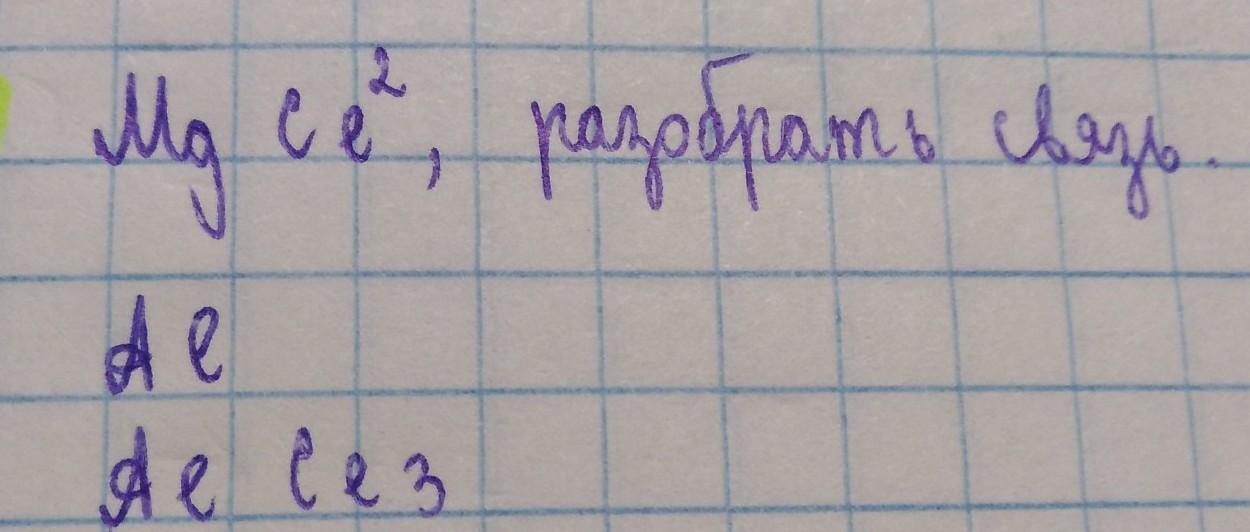 Mg Cl², разобрать связь.
Al
Al Cl3